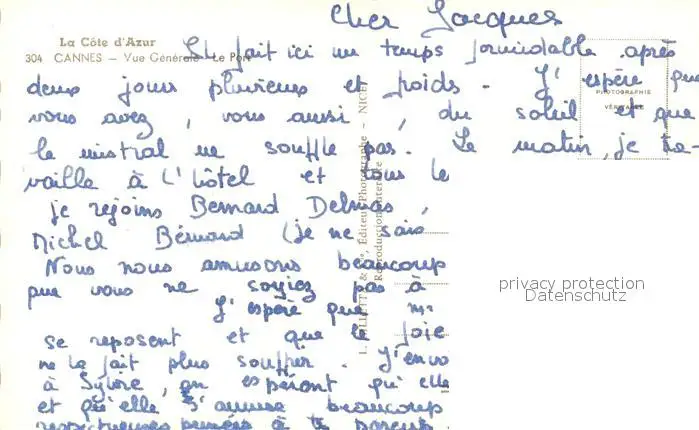 Cher Jacques
La Côte d'Azur
304 CANNES — Vue Générale Le Port
Il fait ici un temps formidable après
deux jours pluvieux et froids. J'espère que
PHOTOGRAPHIE
VÉRITABLE
vous avez, vous aussi, du soleil et que
le mistral ne souffle pas. Le matin, je tra-
vaille à l'hôtel et tous le
je rejoins Bernard Delmas,
Michel Bérnard (je ne sais
Nous nous amusons beaucoup
que vous ne soyiez pas à
J'espère que
se reposent et que le foie
ne la fait plus souffrir. J'envo
à Sylvie, en espérant qu'elle
et qu'elle s'amuse beaucoup
respectueuses pensées à te parents
Éditeur Photographe - NICE
Reproduction interdite
privacy protection
Datenschutz